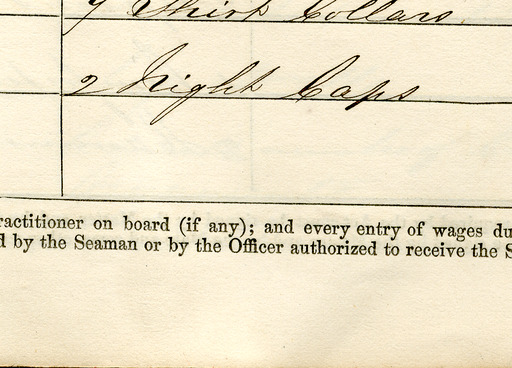 7 Shirt Collars
2 Night Caps
ractitioner on board (if any); and every entry of wages du
d by the Seaman or by the Officer authorized to receive the S